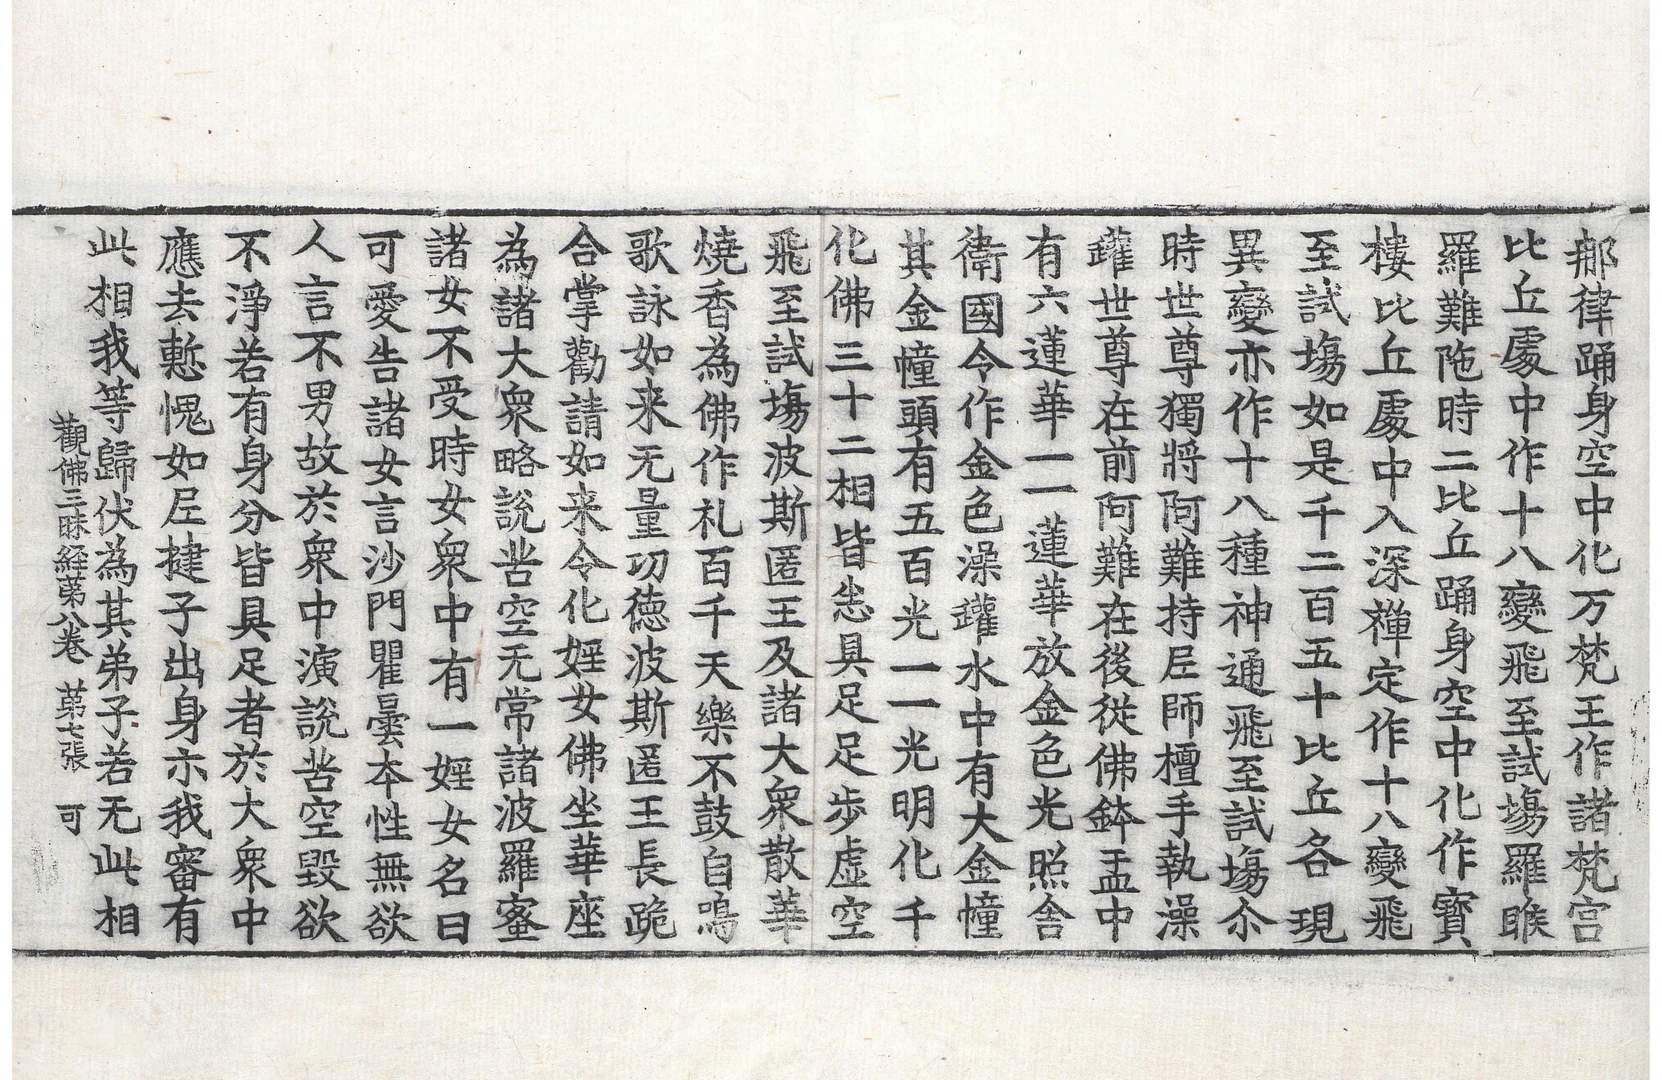 郍律踊身空中化万梵王作諸梵宫
比丘處中作十八變飛至試塲羅睺
羅難陁時二比丘踊身空中化作寳
樓比丘處中入深禪定作十八變飛
至試塲如是千二百五十比丘各現
異變亦作十八種神通飛至試塲尒
時世尊獨將阿難持尼師檀手執澡
鑵世尊在前阿難在後從佛鉢盂中
有六蓮華一一蓮華放金色光照舎
衛國令作金色澡鑵水中有大金幢
其金幢頭有五百光一一光明化千
化佛三十二相皆悉具足足步虚空
飛至試塲波斯匿王及諸大衆散華
燒香為佛作礼百千天樂不鼓自鳴
歌詠如来无量㓛徳波斯匿王長跪
合掌勸請如来令化婬女佛坐華座
為諸大衆略說苦空无常諸波羅蜜
諸女不受時女衆中有一婬女名曰
可愛告諸女言沙門瞿曇本性無欲
人言不男故於衆中演說苦空毀欲
不淨若有身分皆具足者於大衆中
應去慙愧如尼揵子出身示我審有
此相我等歸伏為其弟子若无此相
觀佛三昧経苐八卷 苐七張 可